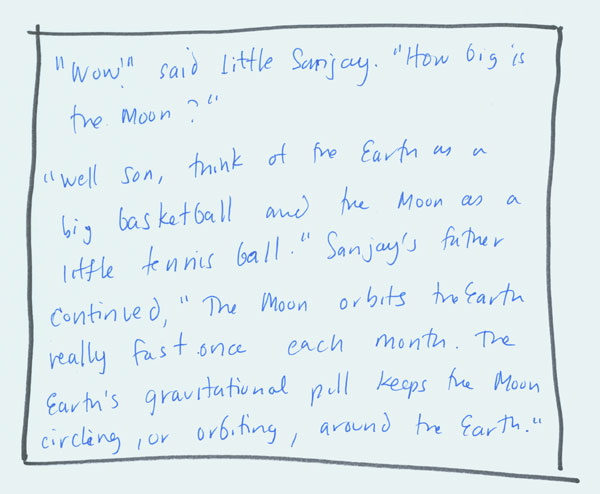 "Wow!" said little Sanjay. "How big is
the Moon?"
"Well son, think of the Earth as a
big basketball and the Moon as a
little tennis ball." Sanjay's father
continued, "The Moon orbits the Earth
really fast once each month. The
Earth's gravitational pull keeps the Moon
circling, or orbiting, around the Earth."